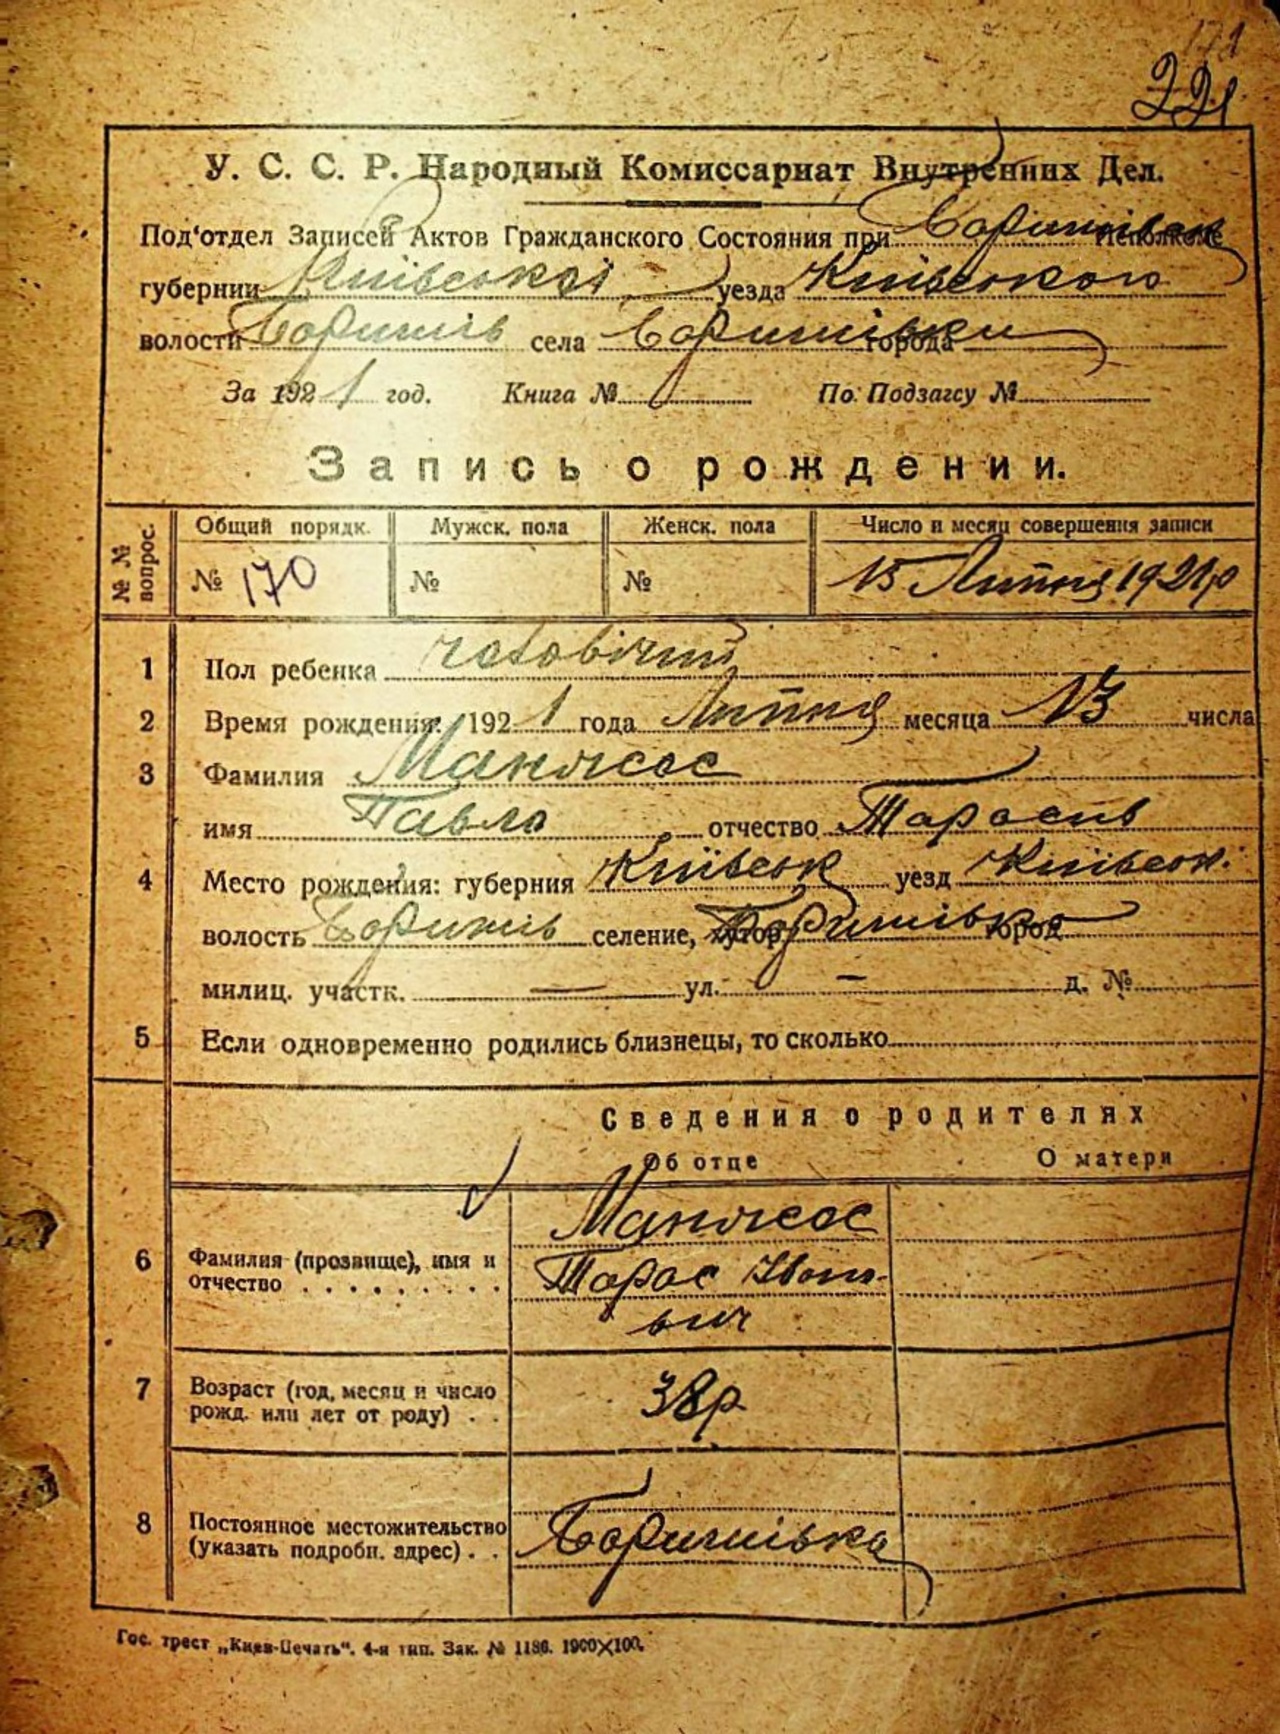 171
221
У. С. С. Р. Народный Комиссариат Внутренних Дел.
Под'отдел Записей Актов Гражданского Состояния при Исполкоме
губернии Київської уезда Київського
волости села города
За 1921 год. Книга № По Подзагсу №
Запись о рождении.
№ № вопрос. Общий порядк. Мужск. пола Женск. пола Число и месяц совершения записи
№ 170 № № 15 Липня 1921р
1 Пол ребенка чоловічий
2 Время рождения: 1921 года Липня месяца 13 числа
3 Фамилия
имя Павло отчество Тарасів
4 Место рождения: губерния Київськ уезд Київськ.
волость селение, хутор город
милиц. участк. — ул. — д. №
5 Если одновременно родились близнецы, то сколько
Сведения о родителях
Об отце О матери
6 Фамилия (прозвище), имя и
отчество
Тарас Івано-
вич
7 Возраст (год, месяц и число
рожд. или лет от роду) . .
38р.
8 Постоянное местожительство
(указать подробн. адрес) . .
Гос. трест „Киев-Печать“. 4-я тип. Зак. № 1186. 1900×100.